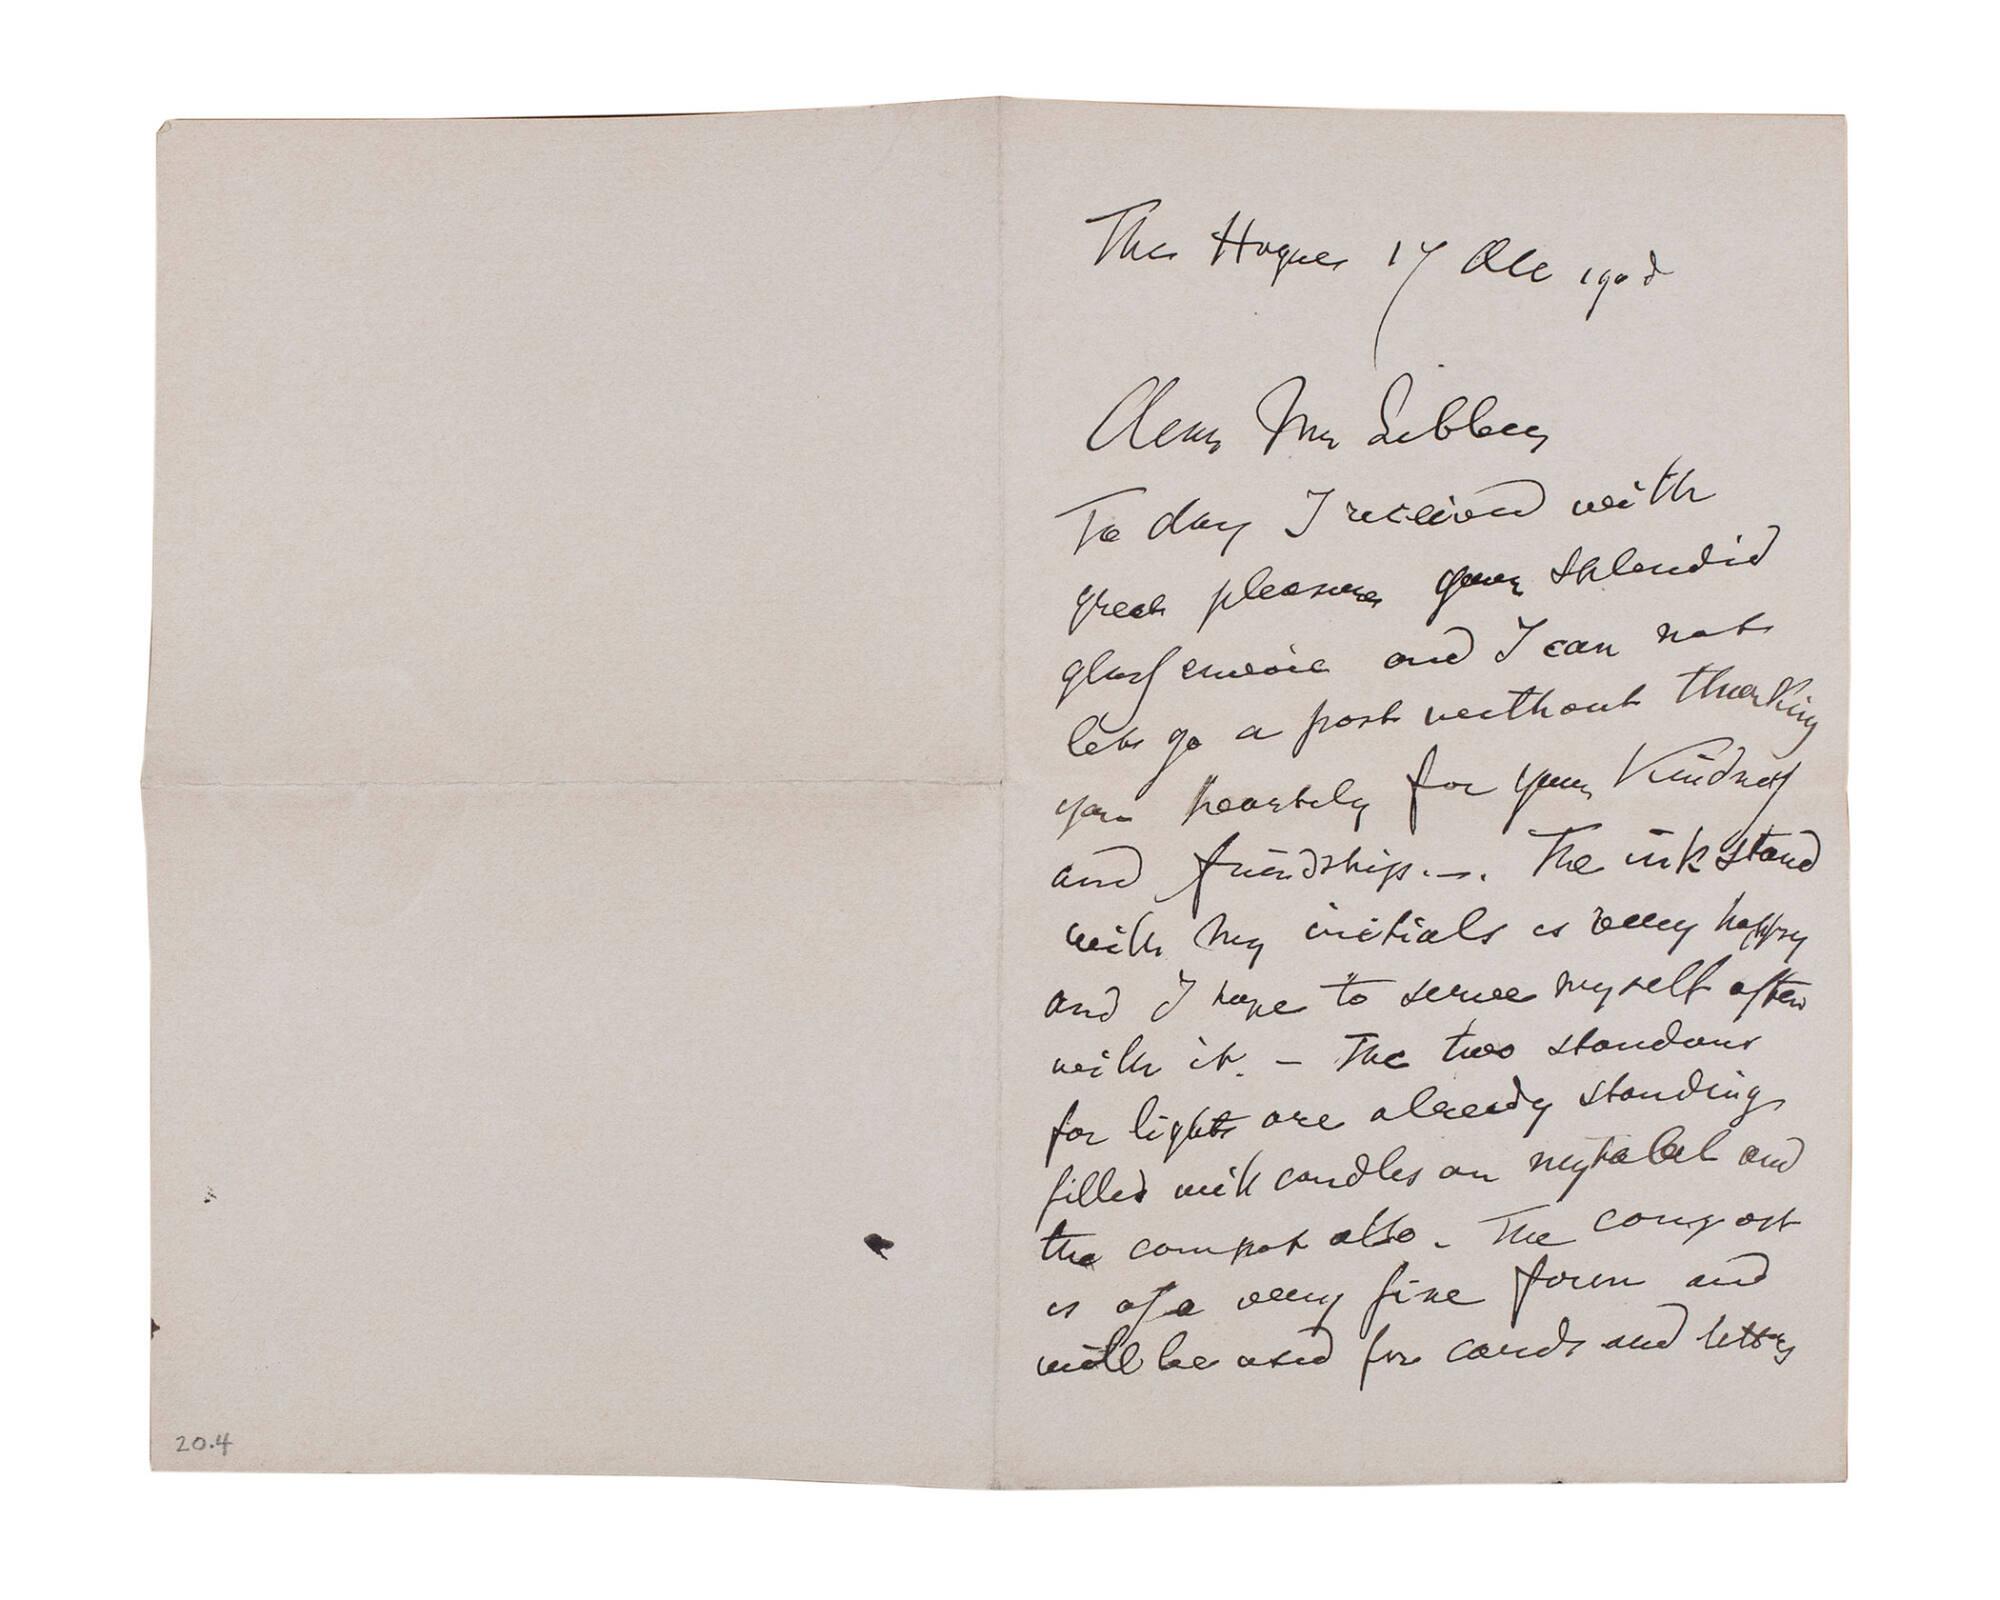 The Hague 17 Dec 190
Dear Mr Libbey
To day I received with
great pleasure your splendid
glass and I can not
let go a post without thanking
you heartely for your Kindness
and friendship.—. The inkstand
with my initials is very happy
and I hope to serve myself often
with it. – The two standars
for lights are already standing
filled with candles on my tabel and
the compot also – The compot
is of a very fine form and
will be used for cards and letters
20.4